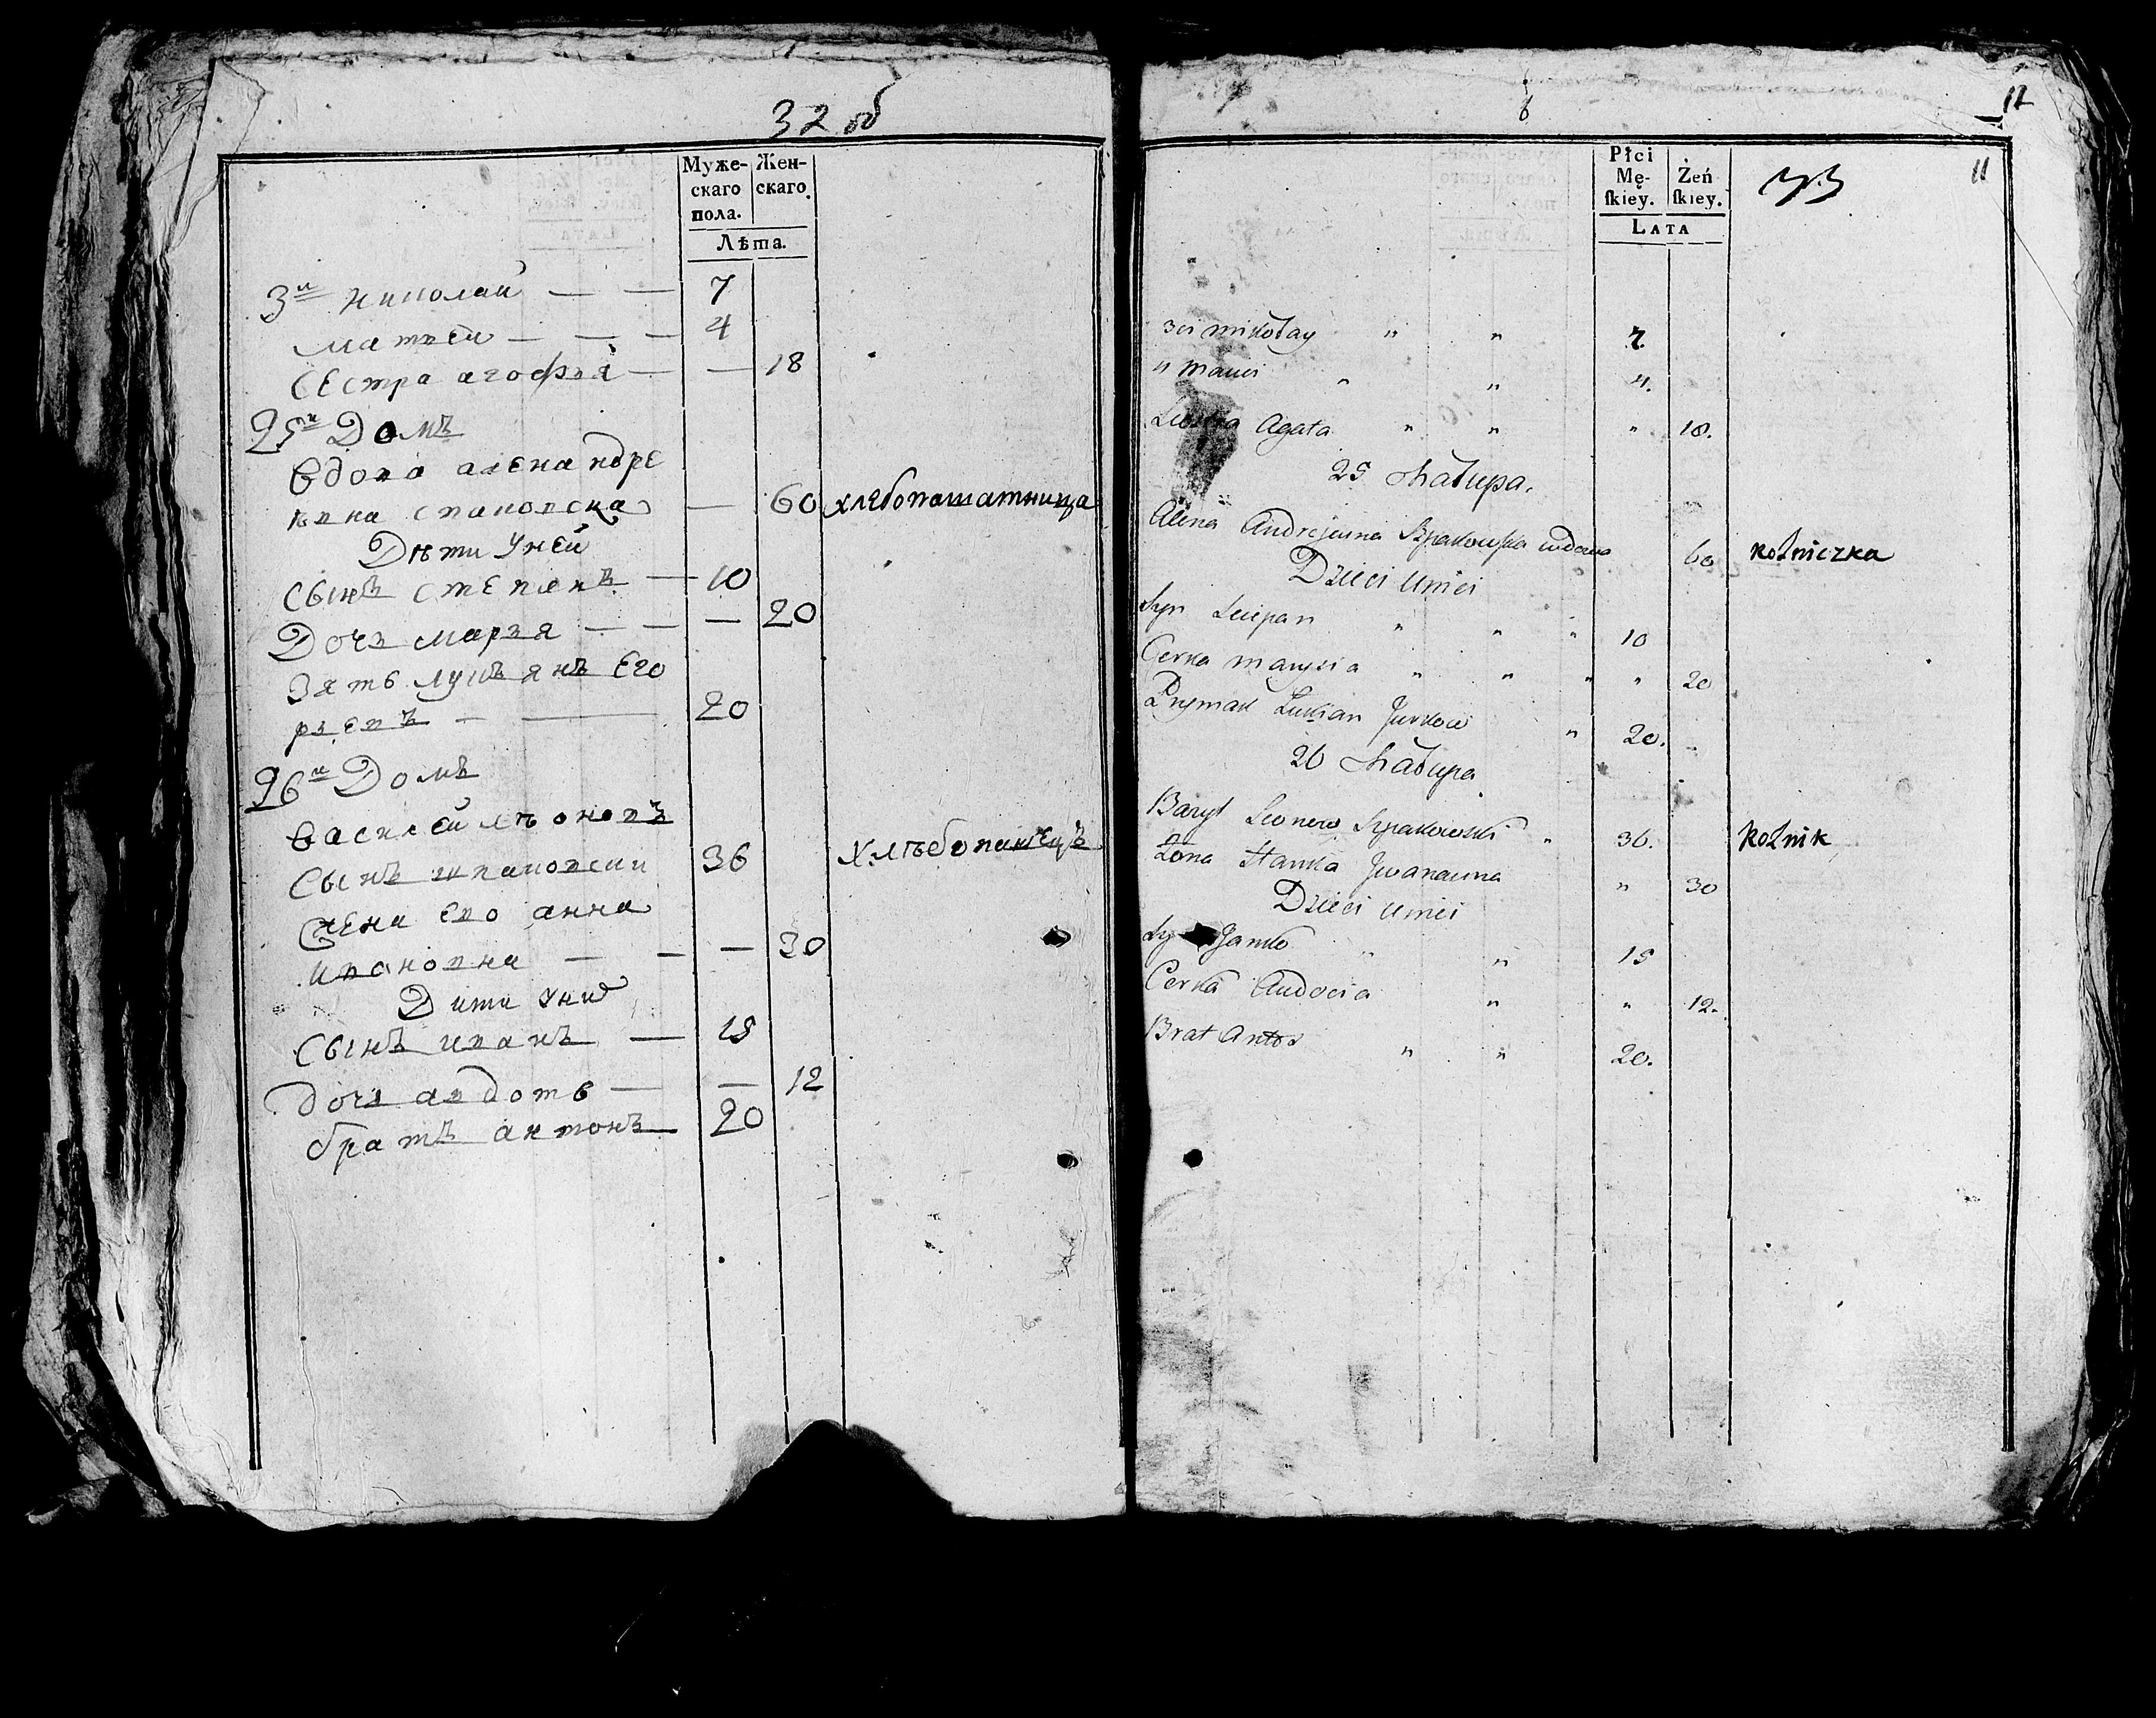 32 об
Муже-
скаго
пола.
Жен-
скаго.
Лѣта.
3й николай — — 7
матвей — — — 4
сестра агофия — — 18
25й Домъ
вдова алена андре
евна спаковска — 60 хлебопашатница
Дѣти унеи
сынъ степанъ — 10
Дочь маря — — — 20
Зять лукьянъ его
ревъ — — 20
26й Домъ
василей лѣоновъ
сынъ шпаковски 36 хлѣбопашецъ
жена ево анна
ивановна — — — 30
Дити унив
сынъ иванъ — 15
дочь авдоть — — 12
братъ антонъ 20
12
Płci
Mę-
ſkiey.
Żeń
ſkiey.
LATA
33
11
3ci mikołay " " 7.
4 Maciei " " 4.
Siostra Agata " " " 18.
25 Chałupa.
Alena Andrejewna Szpakowska wdowa 60 Rolniczka
Dzieci Uniei
Syn Sciepan " " " 10
Cerka marysia " " " " 20
Prymak Łukian Jurkow " 20.
26 Chałupa
Bazyl Leonow Szpakowski " 36. Rolnik
Żona Hanka Jwanauna " 30
Dzieci Uniei
Sy Janko " " 15
Cerka Audocia " " 12.
Brat Antos " " 20.